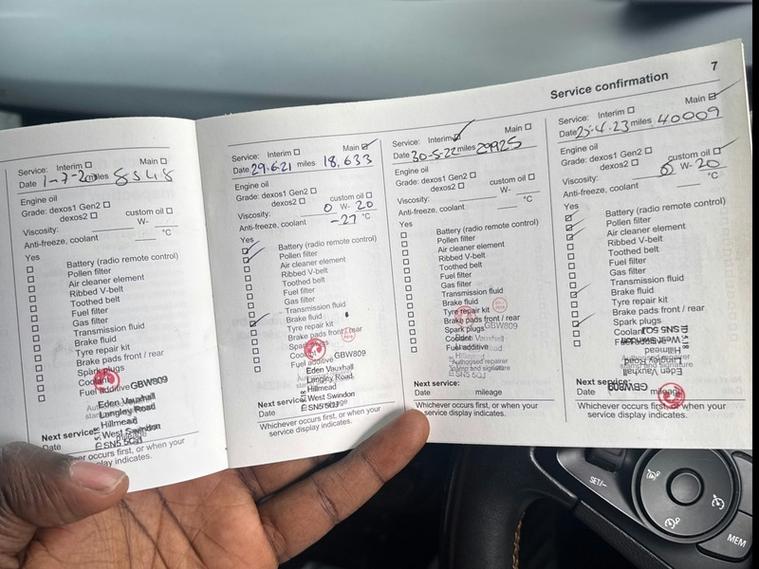 Service confirmation 7
Service: Interim ☐ Main ☐
Date 1-7-20 miles 8548
Engine oil
Grade: dexos1 Gen2 ☐
dexos2 ☐ custom oil ☐
Viscosity: W-
Anti-freeze, coolant °C
Yes
Battery (radio remote control)
Pollen filter
Air cleaner element
Ribbed V-belt
Toothed belt
Fuel filter
Gas filter
Transmission fluid
Brake fluid
Tyre repair kit
Brake pads front / rear
Spark plugs
Coolant
Fuel additive GBW809
Eden Vauxhall
Langley Road
Hillmead
West Swindon
SN5 5QJ
Next service:
Date mileage
Whichever occurs first, or when your
service display indicates.
Service: Interim ☐ Main ☑
Date 29.6.21 miles 18,633
Engine oil
Grade: dexos1 Gen2 ☐
dexos2 ☐ custom oil ☐
Viscosity: 0 W- 20
Anti-freeze, coolant -27 °C
Yes
Battery (radio remote control)
Pollen filter
Air cleaner element
Ribbed V-belt
Toothed belt
Fuel filter
Gas filter
Transmission fluid
Brake fluid
Tyre repair kit
Brake pads front / rear
Spark plugs
Coolant
Fuel additive GBW809
Eden Vauxhall
Langley Road
Hillmead
West Swindon
SN5 5QJ
Next service:
Date
Whichever occurs first, or when your
service display indicates.
Service: Interim ☑ Main ☐
Date 30-5-22 miles 29925
Engine oil
Grade: dexos1 Gen2 ☐
dexos2 ☐ custom oil ☐
Viscosity: W-
Anti-freeze, coolant °C
Yes
Battery (radio remote control)
Pollen filter
Air cleaner element
Ribbed V-belt
Toothed belt
Fuel filter
Gas filter
Transmission fluid
Brake fluid
Tyre repair kit
Brake pads front / rear
Spark plugs GBW809
Coolant
Fuel additive
Authorised repairer
stamp and signature
SN5 5QJ
Next service:
Date mileage
Whichever occurs first, or when your
service display indicates.
Service: Interim ☐ Main ☑
Date 25.4.23 miles 40009
Engine oil
Grade: dexos1 Gen2 ☐
dexos2 ☐ custom oil ☐
Viscosity: 0 W- 20
Anti-freeze, coolant °C
Yes
Battery (radio remote control)
Pollen filter
Air cleaner element
Ribbed V-belt
Toothed belt
Fuel filter
Gas filter
Transmission fluid
Brake fluid
Tyre repair kit
Brake pads front / rear
Spark plugs
Coolant SN5 5QJ
West Swindon
Hillmead
Langley Road
Eden Vauxhall
GBW809
Next service:
Date mileage
Whichever occurs first, or when your
service display indicates.
SET/-
MEM